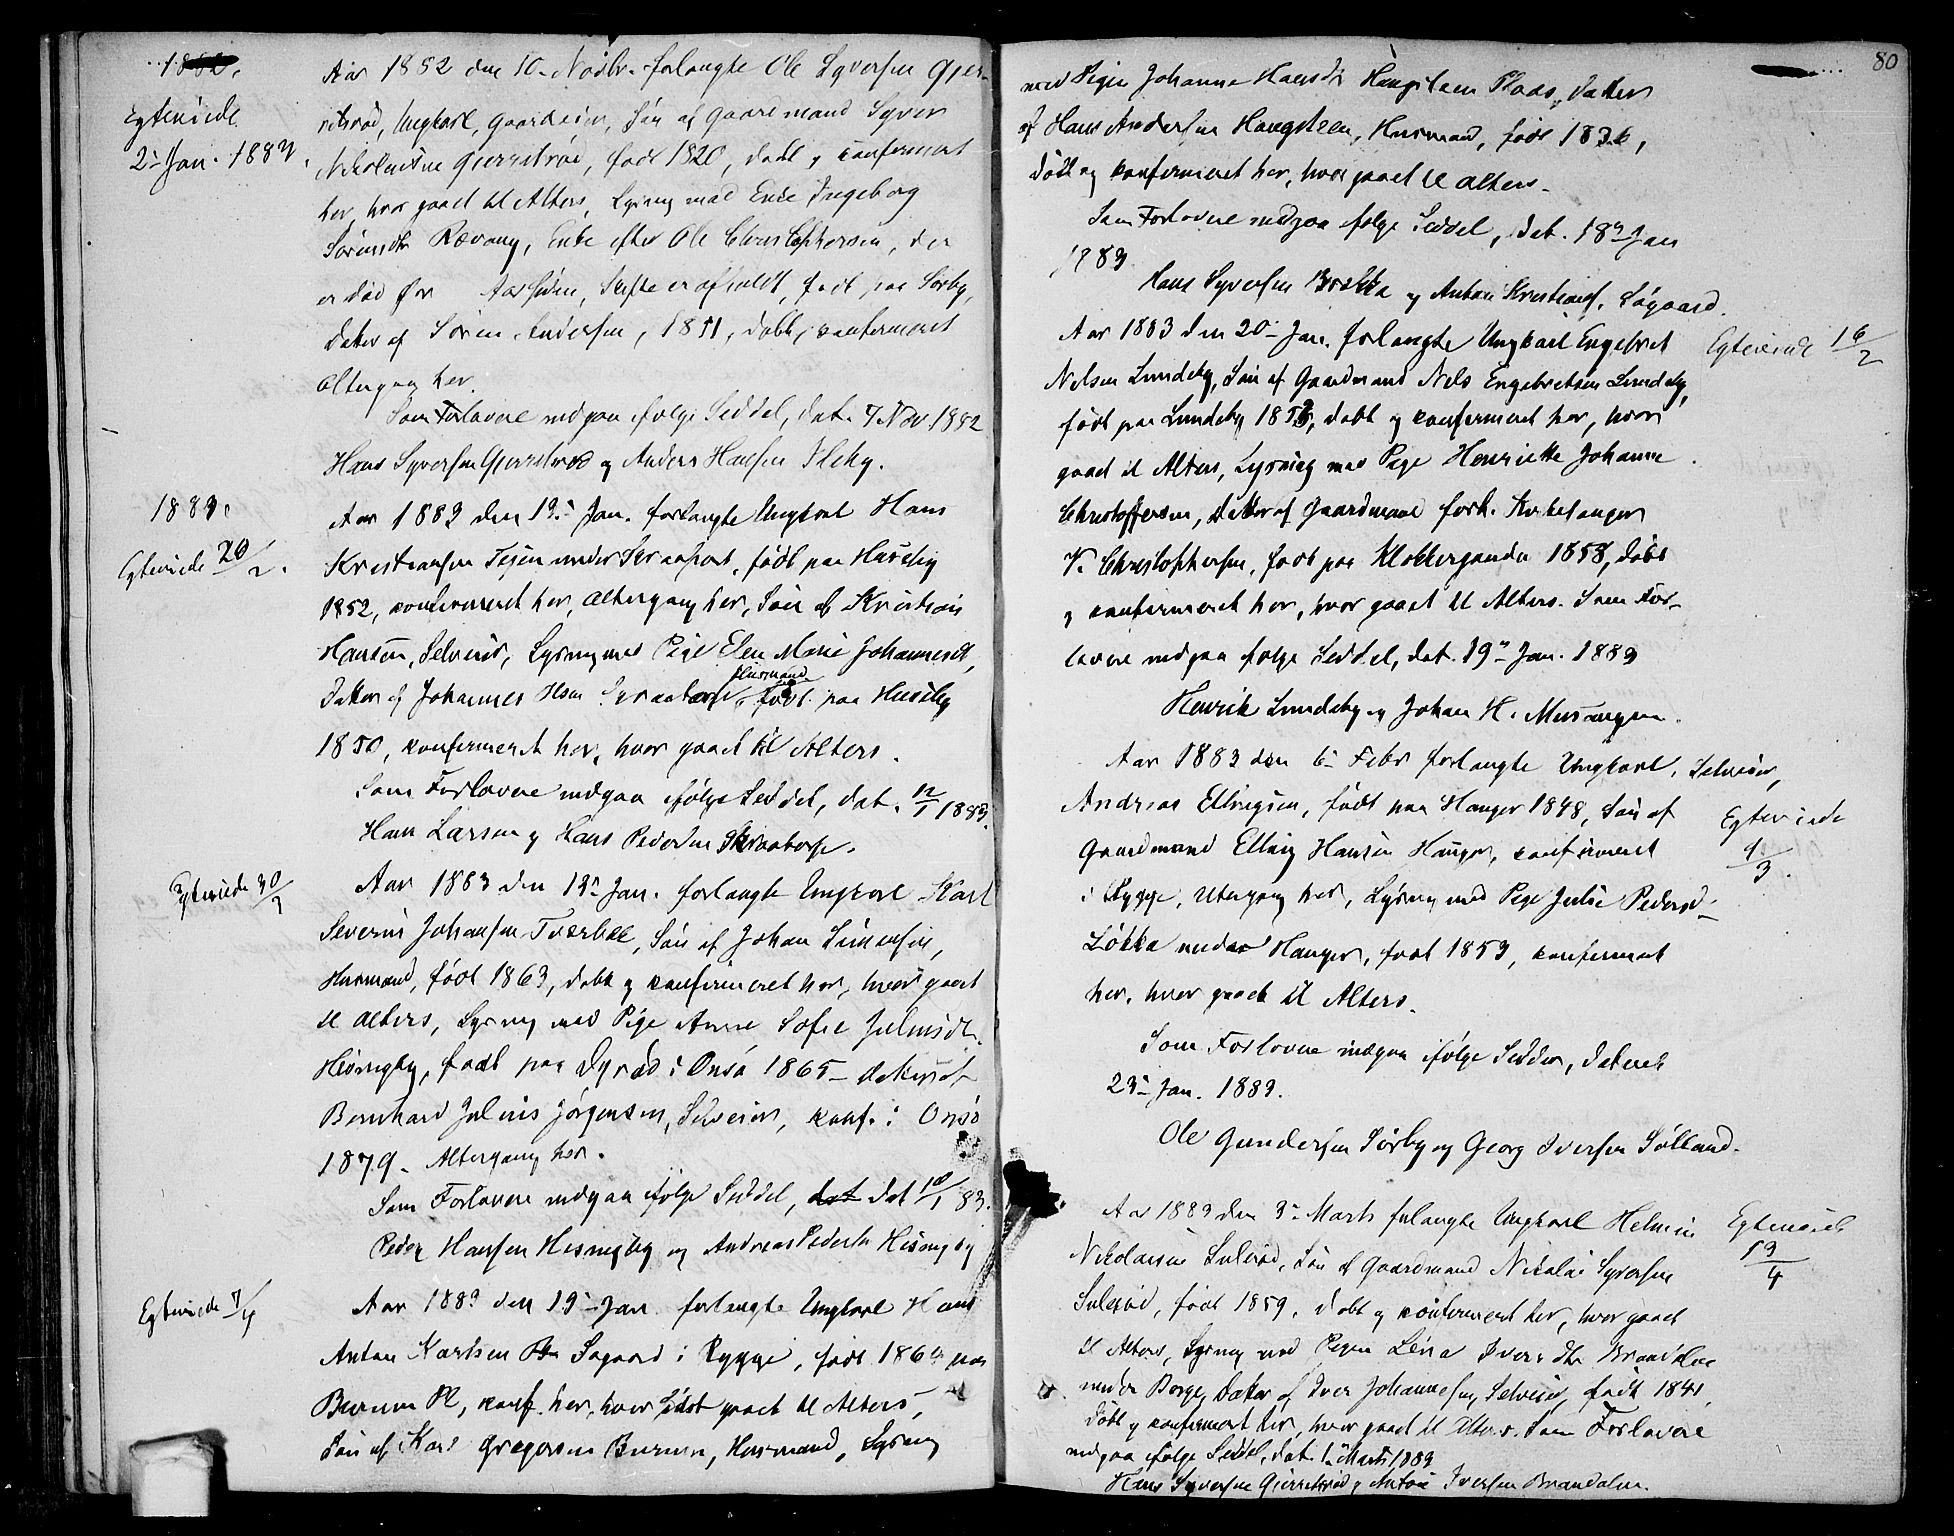 80
Egteviede
2 Jan. 1883.
Aar 1882 den 10. Novbr. forlangte Ole Syversen Gjer-
retsrød, Ungkarl, Gaardeier, Søn af Gaardmand Syver
født 1820, døbt og konfirmeret
her, hvor gaaet til Alters, Lysning med Enke Ingeborg
Rævang, Enke efter Ole Christophersen, der
er død for Aar siden, Skifte er afholdt, født paa Sørby,
Datter af Søren Andersen, 1851, døbt, konfirmeret
Altergang her.
Som Forlovere indgaa ifølge Seddel, dat. 7 Nov 1882
Hans Syversen Gjerretsrød og Anders Hansen
1883.
Egteviede 20/2.
Aar 1883 den 13. Jan. forlangte Ungkarl Hans
Kristiansen under født paa Huseby
1852, konfirmeret her, Altergang her, Søn af Kristian
Hansen, Selveier, Lysning med Pige Elen Marie Johannesd.,
Datter af Johannes Husmand født paa Huseby
1850, konfirmeret her, hvor gaaet til Alters.
Som Forlovere indgaa ifølge Seddel, dat. 12/1 1883.
Hans Larsen og Hans Pedersen Skraatorp.
Egteviede 30/3
Aar 1883 den 13. Jan. forlangte Ungkarl Karl
Severin Johansen Tverbæk, Søn af Johan Simensen,
Husmand, født 1863, døbt og konfirmeret her, hvor gaaet
til Alters, Lysning med Pige Anne Sofie Juliusdt.
født paa Dyrød i Onsø 1865 - Datter af
Bernhard Julius Jørgensen, Selveier, konf. i Onsø
1879. Altergang her.
Som Forlovere indgaa ifølge Seddel, dat dat 10/1 83.
Peder Hansen og Andreas Pedersen
Egteviede 7/4
Aar 1883 den 19 - Jan. forlangte Ungkarl Hans
Anton Karlsen Søgaard i Rygge, født 1860 paa
Pl, konf. her, hvor sidst gaaet til Alters,
Søn af Karl Gregersen Husmand, Lysning
med Pigen Johanne Hansdt. Haugsteen Plads, Datter
af Hans Andersen Haugsteen, Husmand, født 1836,
døbt og konfirmeret her, hvor gaaet til Alters.
Som Forlovere indgaa ifølge Seddel, dat. 18 - Jan
1883
Hans Syversen Brekke og Anton Kristians. Søgaard.
Aar 1883 den 20 - Jan. forlangte Ungkarl Engebret
Egteviede 16/2
Nilsen Lundeby, Søn af Gaardmand Nels Engebretsen Lundeby,
født paa Lundeby 1853, døbt og konfirmeret her, hvor
gaaet til Alters, Lysning med Pige Henriette Johanne
Christoffersen, Datter af Gaardmand forh. Kirkesanger
V. Christophersen, født paa Klokkergaarden 1858, døbt
og konfirmeret her, hvor gaaet til Alters. Som For-
lovere indgaa ifølge Seddel, dat. 19 - Jan. 1883
Henrik Lundeby og Johan H.
Aar 1883 den 6 - Febr forlangte Ungkarl, Selveier,
Andreas Ellingsen, født paa Hauger 1848, Søn af
Egteviede
4/3.
Gaardmand Elling Hansen Hauger, konfirmeret
i Rygge, Altergang her, Lysning med Pige Julie Pedersd -
Løkka under Hauger, født 1853, konfirmeret
her, hvor gaaet til Alters.
Som Forlovere indgaa ifølge Seddel, dateret
23 - Jan. 1883.
Ole Gundersen Sørby og Georg Iversen Sølland.
Aar 1883 den 3 - Marts forlangte Ungkarl Helmin
Egteviede
13/4
Nikolaisen Sulerød, Søn af Gaardmand Nikolai Syversen
Sulerød, født 1859, døbt og konfirmeret her, hvor gaaet
til Alters, Lysning med Pigen Lena Iversdtr Brandalen
under Borge, Datter af Iver Johannesen, Selveier, født 1841,
døbt og konfirmeret her, hvor gaaet til Alters. Som Forlovere
indgaa ifølge Seddel, dat. 1 - Marts 1883
Hans Syversen Gjerretsrød, Anton Iversen Brandalen.